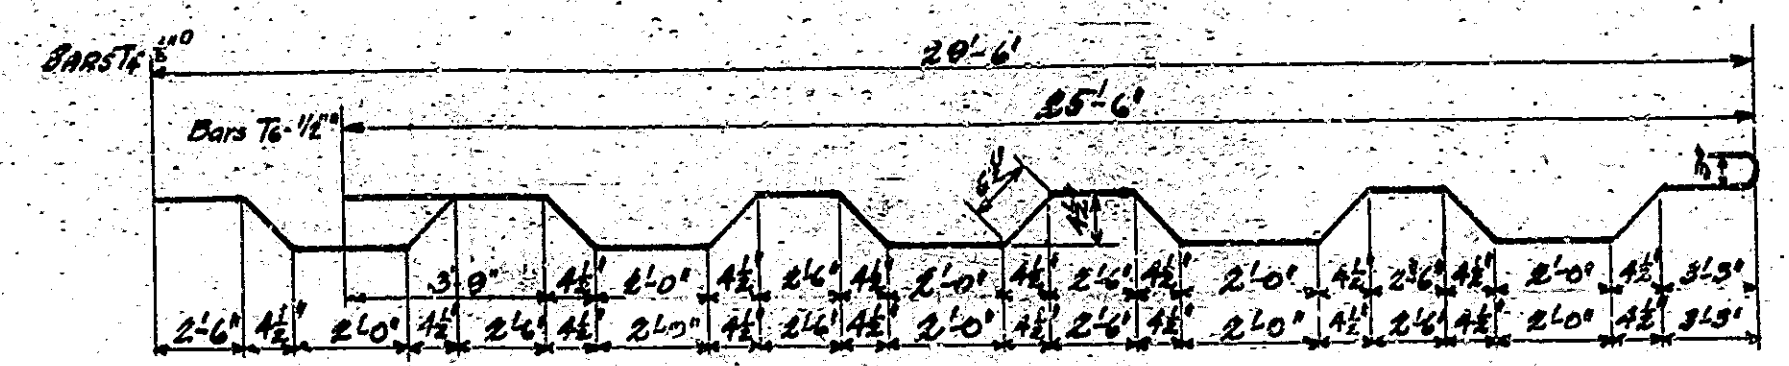 BARS T4 ½"□ 29'-6"
25'-6"
Bars T6-1/2"□
6½" 4½" 3"
3'-9" 4½" 2'-0" 4½" 2'-6" 4½" 2'-0" 4½" 2'-6" 4½" 2'-0" 4½" 2'-6" 4½" 2'-0" 4½" 3'-3"
2'-6" 4½" 2'-0" 4½" 2'-6" 4½" 2'-0" 4½" 2'-6" 4½" 2'-0" 4½" 2'-6" 4½" 2'-0" 4½" 2'-6" 4½" 2'-0" 4½" 3'-3"